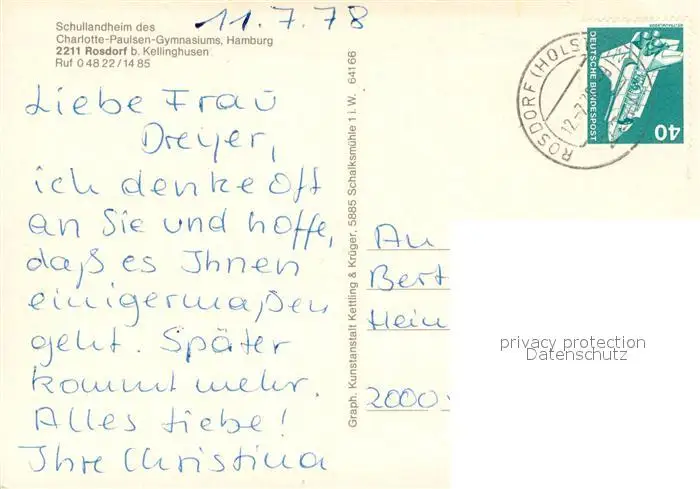 11.7.78
Schullandheim des
Charlotte-Paulsen-Gymnasiums, Hamburg
2211 Rosdorf b. Kellinghusen
Ruf 0 48 22 / 14 85
Liebe Frau
Dreyer,
ich denke oft
an Sie und hoffe,
daß es Ihnen
einigermaßen
geht. Später
kommt mehr.
Alles Liebe!
Ihre Christina
Graph. Kunstanstalt Kettling & Krüger, 5885 Schalksmühle 1 i. W. 64166
ROSDORF (HOLST
12.-7.78
DEUTSCHE BUNDESPOST
40
An
Bert
Hein
2000
privacy protection
Datenschutz